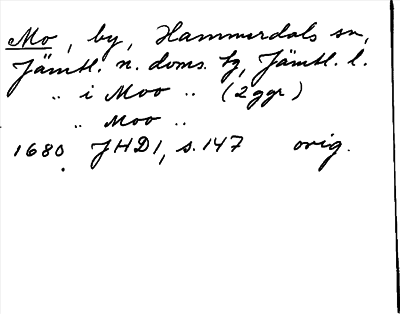 Mo, by, Hammerdals sn,
Jämtl. n. doms. tg, Jämtl. l.
" i Moo " (2ggr)
" Moo "
1680. JHD1, s. 147 orig.